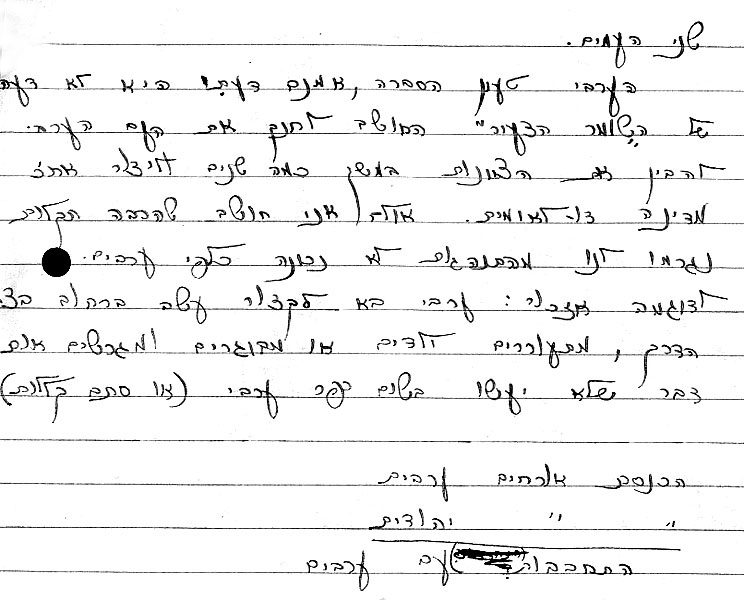 שני העמים.
הערבי טעון הסברה, אמנם דעתי היא לא דעת
של "השומר הצעיר" החושב לחנך את העם הערבי
להבין את הציונות במשך כמה שנים וליצור אתו
מדינה דו-לאומית. אולם אני חושב שהרבה תקלות
נגרמו לנו מהתנהגות לא נכונה כלפי ערבים.
לדוגמה אזכיר: ערבי בא לקצור עשב ברחוב בצד
הדרך, מתעוררים ילדים או מבוגרים ומגרשים אותם
דבר שלא יעשו בשום כפר ערבי (או סתם קללות)
הכנסת אורחים ערבים
" " יהודים
התחבבות עם ערבים